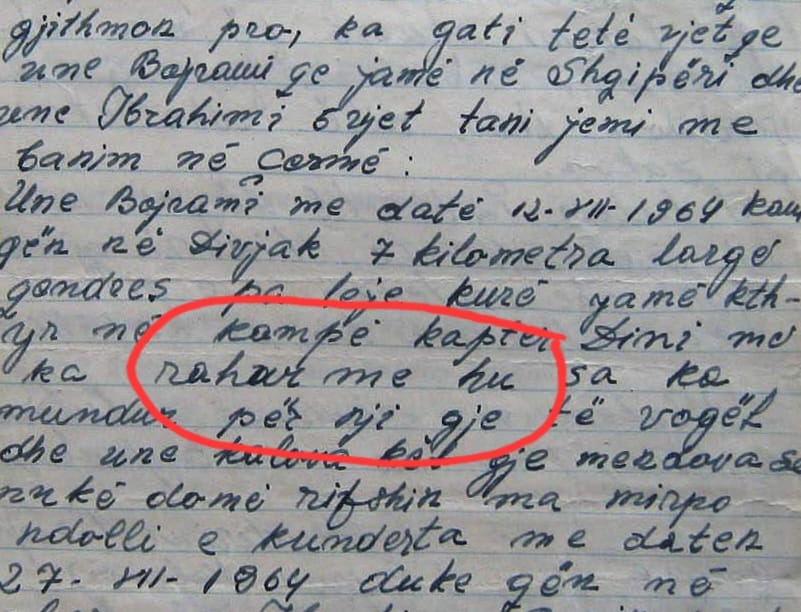 gjithmon pro, ka gati tetë vjet qe
une Bajrami qe jamë në Shqipëri dhe
une Ibrahimi 6 vjet tani jemi me
banim në Çermë:
Une Bajrami me datë 12-VIII-1964 kam
qën në Divjak 7 kilometra largë
qendres pa leje kurë jamë kth-
yr në kampë kapter Dini më
ka rahur me hu sa ka
mundur për nji gje të vogël
dhe une kalova kët gje mendova se
nukë domë rifshin ma mirpo
ndolli e kunderta me daten
27-VIII-1964 duke qën në